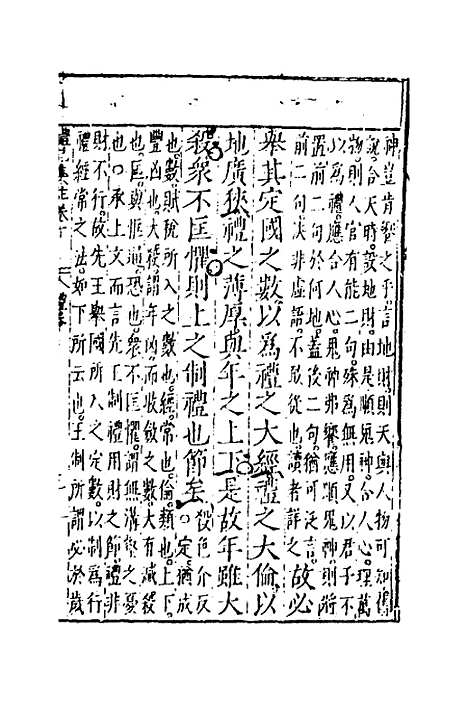 神豈肯饗之乎言地財則天與人物可知舊
說合天時設地財由是順鬼神合人心理萬
物則人官有能二句殊爲無用又以君子不
以爲禮應合人心鬼神弗饗應順鬼神則將
置前二句於何地蓋後二句猶可泛言
前二句決非虛語不敢從也讀者詳之故必
舉其定國之數以爲禮之大經禮之大倫以
地廣狹禮之薄厚與年之上下是故年雖大
殺衆不匡懼則上之制禮也節矣殺色介反
定猶成
也數賦稅所入之數也經常也倫類也上下
豐凶也大殺謂年凶而收斂之數大有減殺
也匡與恇通恐也衆不匡懼謂無溝壑之憂
也承上文而言先王制禮用財之節禮非
財不行故先王舉國所入之定數以制爲行
禮經常之法如下所云也王制所謂必於歲
禮記集註卷十